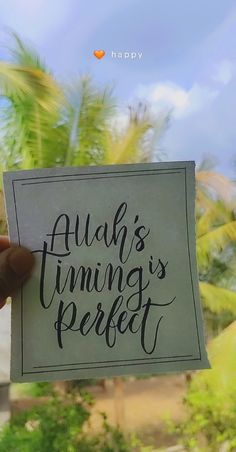 🧡 happy
Allah's
timing is
perfect